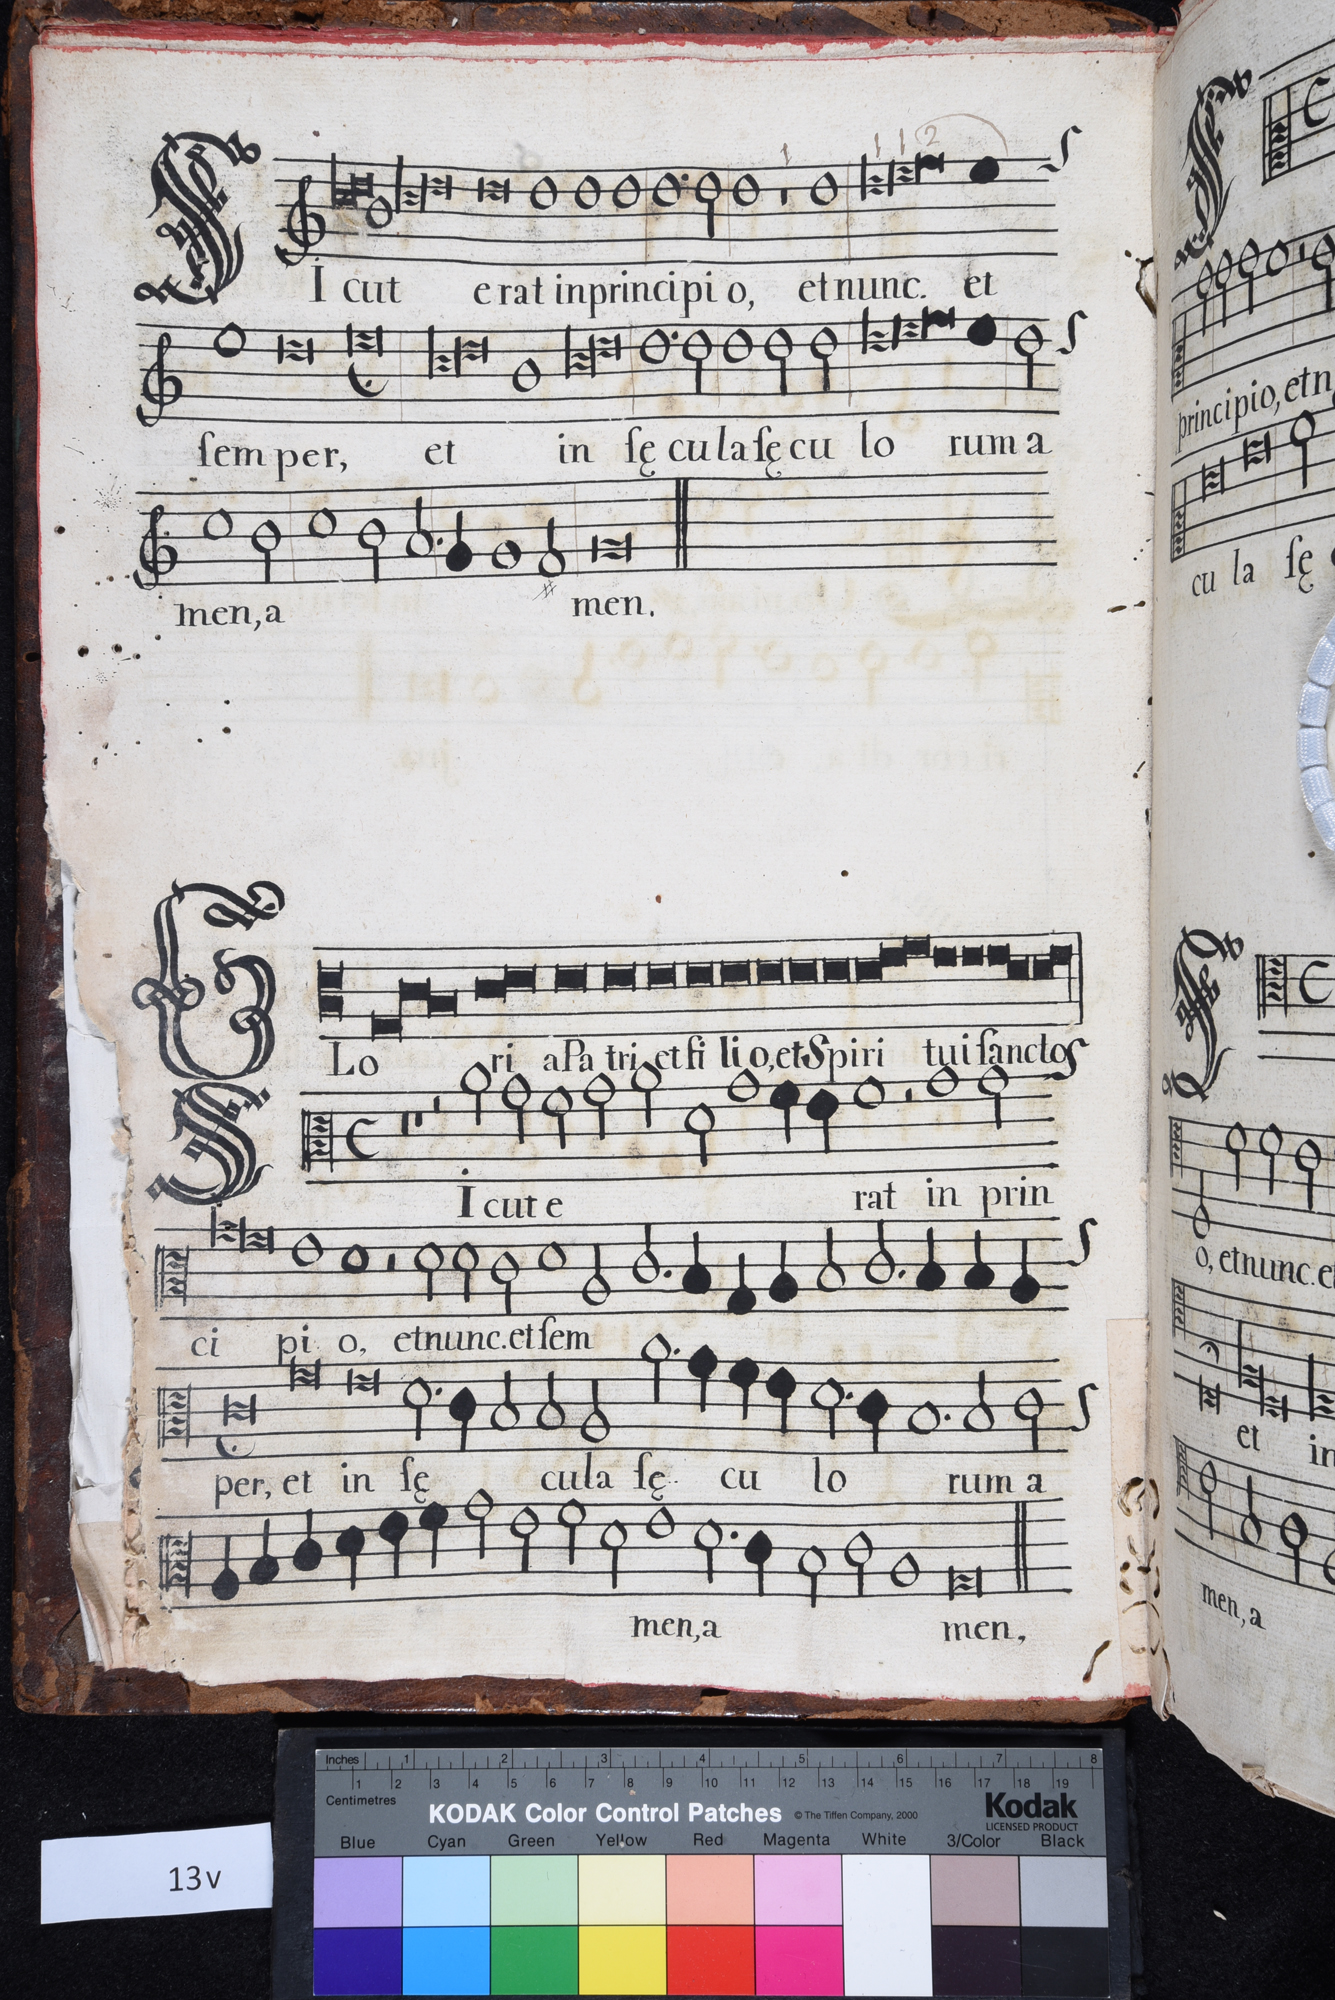 1 1 1 2
SIcut erat inprincipio, etnunc. et
ſemper, et in ſęculaſęculorum a
men, a men.
GLoria Patri, etfilio, et Spiritui ſancto
SIcut erat in prin
cipio, etnunc. et ſem
per, et in ſęcula ſęculorum a
men, a men.
principio, etn
cu la ſę
o, etnunc. et
et in
men, a
Inches 1 2 3 4 5 6 7 8
Centimetres 1 2 3 4 5 6 7 8 9 10 11 12 13 14 15 16 17 18 19
KODAK Color Control Patches © The Tiffen Company, 2000 Kodak
LICENSED PRODUCT
Blue Cyan Green Yellow Red Magenta White 3/Color Black
13v